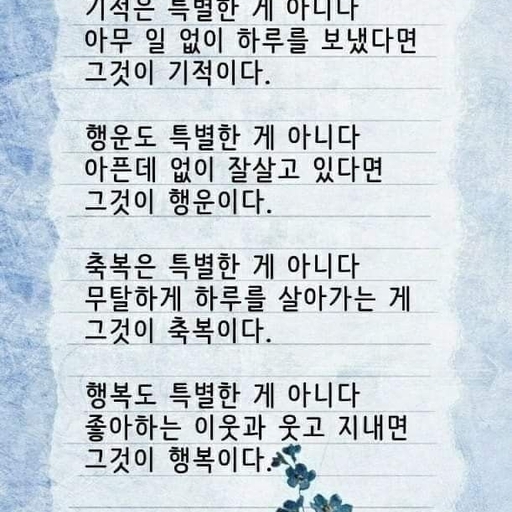 기적은 특별한 게 아니다
아무 일 없이 하루를 보냈다면
그것이 기적이다.
행운도 특별한 게 아니다
아픈데 없이 잘살고 있다면
그것이 행운이다.
축복은 특별한 게 아니다
무탈하게 하루를 살아가는 게
그것이 축복이다.
행복도 특별한 게 아니다
좋아하는 이웃과 웃고 지내면
그것이 행복이다.